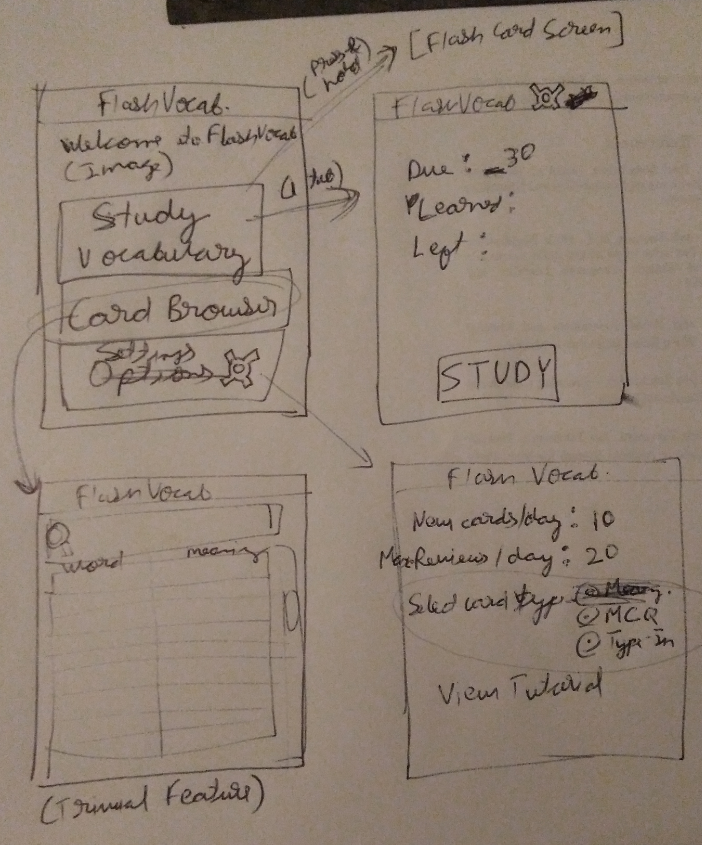 [Flash Card Screen]
(press & hold)
FlashVocab.
Welcome to FlashVocab
(Image)
Study
Vocabulary
Card Browser
Settings
Options
FlashVocab
Due: 30
Learned:
Left:
STUDY
FlashVocab
word meaning
(Trivial Feature)
Flash Vocab.
New cards/day: 10
Max Reviews/day: 20
Select card type
MCQ
Type-In
View Tutorial